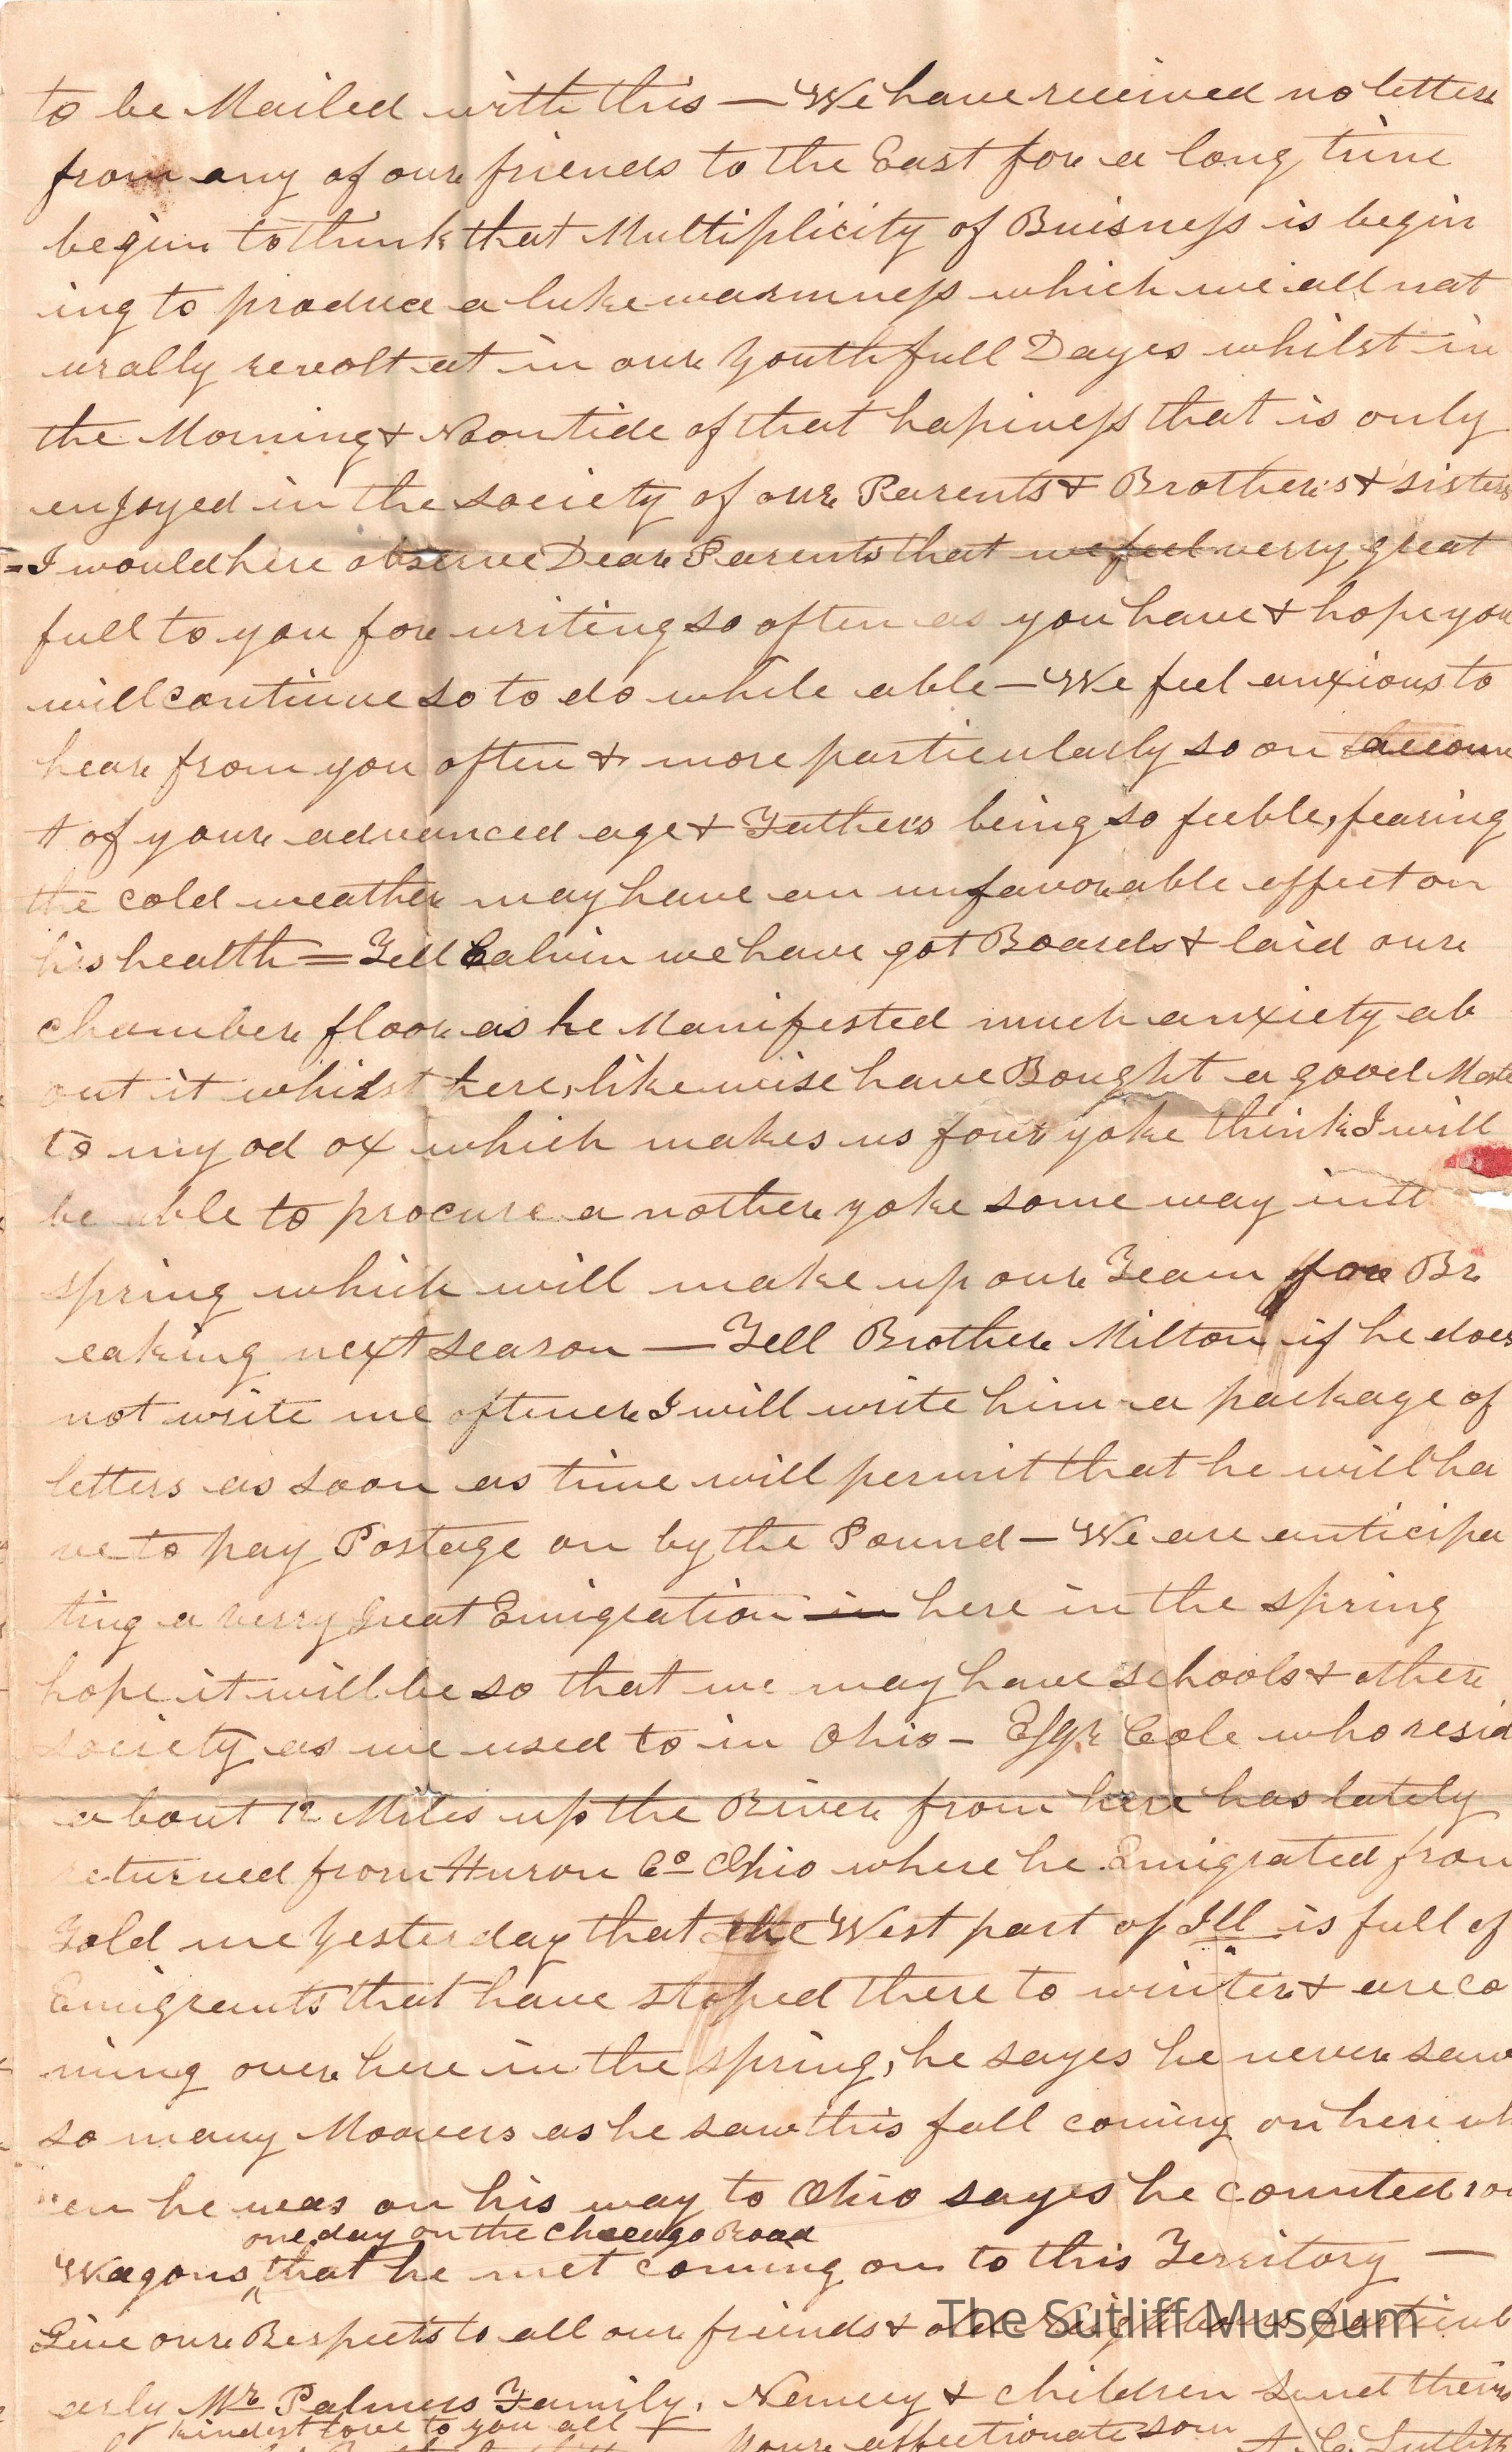 to be Mailed with this — We have received no letters
from any of our friends to the East for a long time
begin to think that Multiplicity of Buisness is begin
ing to produce a lukewarmness which we all nat
urally revolt at in our Youthfull Dayes whilst in
the Morning & Noontide of that hapiness that is only
enjoyed in the society of our Parents & Brothers & sisters
= I would here observe Dear Parents that we feel verry great
full to you for writing so often as you have & hope you
will continue so to do while able — We feel anxious to
hear from you often & more particularly so on accoun
t of your advanced age & Father's being so feeble, fearing
the cold weather may have an unfavourable effect on
his health = Tell Calvin we have got Boards & laid our
chamber floor as he Manifested much anxiety ab
out it whilst here, likewise have Bought a good Mate
to my od ox which makes us four yoke think I will
be able to procure a nother yoke some way in
spring which will make up our Team for Br
eaking next season — Tell Brother Milton if he does
not write me oftener I will write him a package of
letters as soon as time will permit that he will ha
ve to pay Postage on by the Pound — We are anticipa
ting a verry Great Emigration in here in the spring
hope it will be so that we may have schools & other
society as we used to in Ohio — Esqr Cole who resid
about 12 Miles up the River from here has lately
returned from Huron Co Ohio where he Emigrated from
Told me Yesterday that the West part of Ill. is full of
Emigrants that have stoped there to winter & are co
ming over here in the spring, he sayes he never saw
so many Moovers as he saw this fall coming on here wh
en he was on his way to Ohio sayes he counted
one day on the Checago Road
Wagons ^ that he met coming on to this Territory —
Give our Respects to all our friends & old Neighbours particul
The Sutliff Museum
arly Mr Palmers Family. Nancy & children send their
kindest love to you all —
Your affectionate son A. C. Sutliff